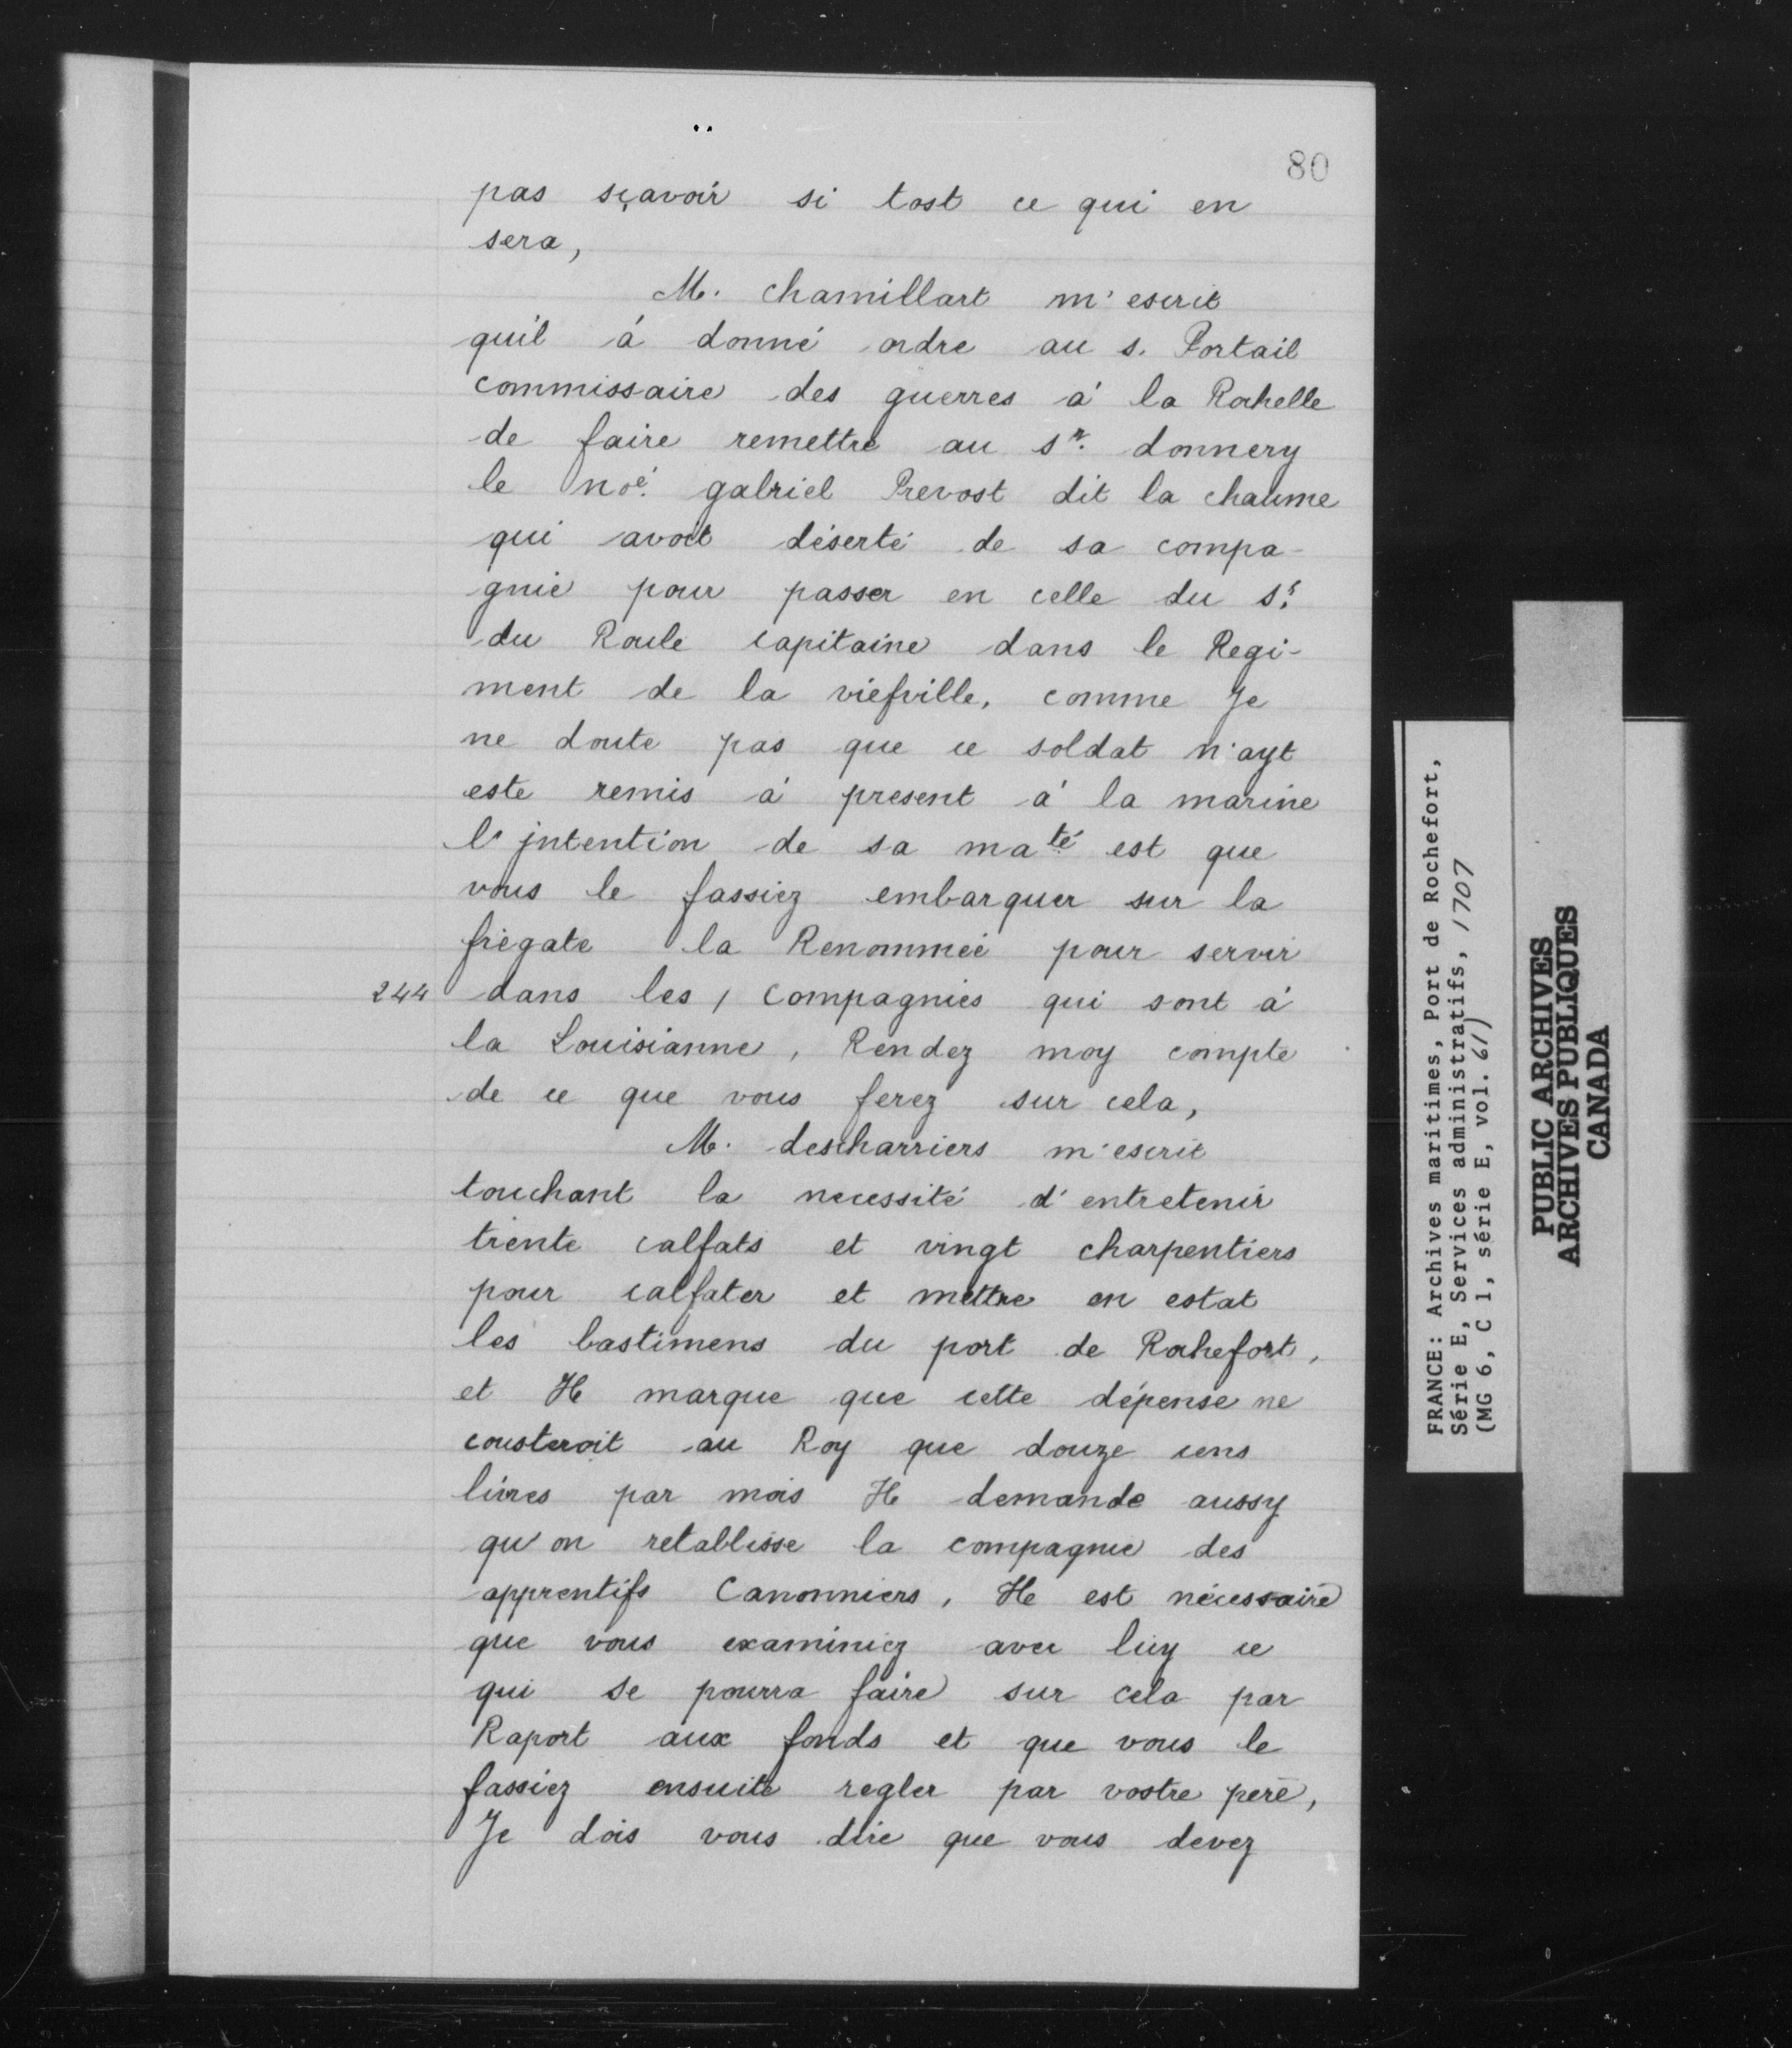 80
pas sçavoir si tost ce qui en
sera,
M. chamillart m'escrit
qu'il á donné ordre au s. Portail
commissaire des guerres á la Rochelle
de faire remettre au sr. donnery
le noé. gabriel Prevost dit la chaume
qui avoit déserté de sa compa-
gnie pour passer en celle du sr.
du Roule capitaine dans le Regi-
ment de la viefville, comme Je
ne doute pas que ce soldat n'ayt
este remis á present á la marine
l'jntention de sa maté est que
vous le fassiez embarquer sur la
frégate la Renommée pour servir
244 dans les / compagnies qui sont á
la Louisianne, Rendez moy compte
de ce que vous ferez sur cela,
M. descharriers m'escrit
touchant la necessité d'entretenir
trente calfats et vingt charpentiers
pour calfater et mettre en estat
les bastimens du port de Rochefort,
et Il marque que cette dépense ne
cousteroit au Roy que douze cens
livres par mois Il demande aussy
qu'on retablisse la compagnie des
apprentifs Canonniers, Il est nécessaire
que vous examiniez avec luy ce
qui se pourra faire sur cela par
Raport aux fonds et que vous le
fassiez ensuite regler par vostre pere,
Je dois vous dire que vous devez
FRANCE: Archives maritimes, Port de Rochefort,
Série E, Services administratifs, 1707
(MG 6, C 1, série E, vol. 61)
PUBLIC ARCHIVES
ARCHIVES PUBLIQUES
CANADA